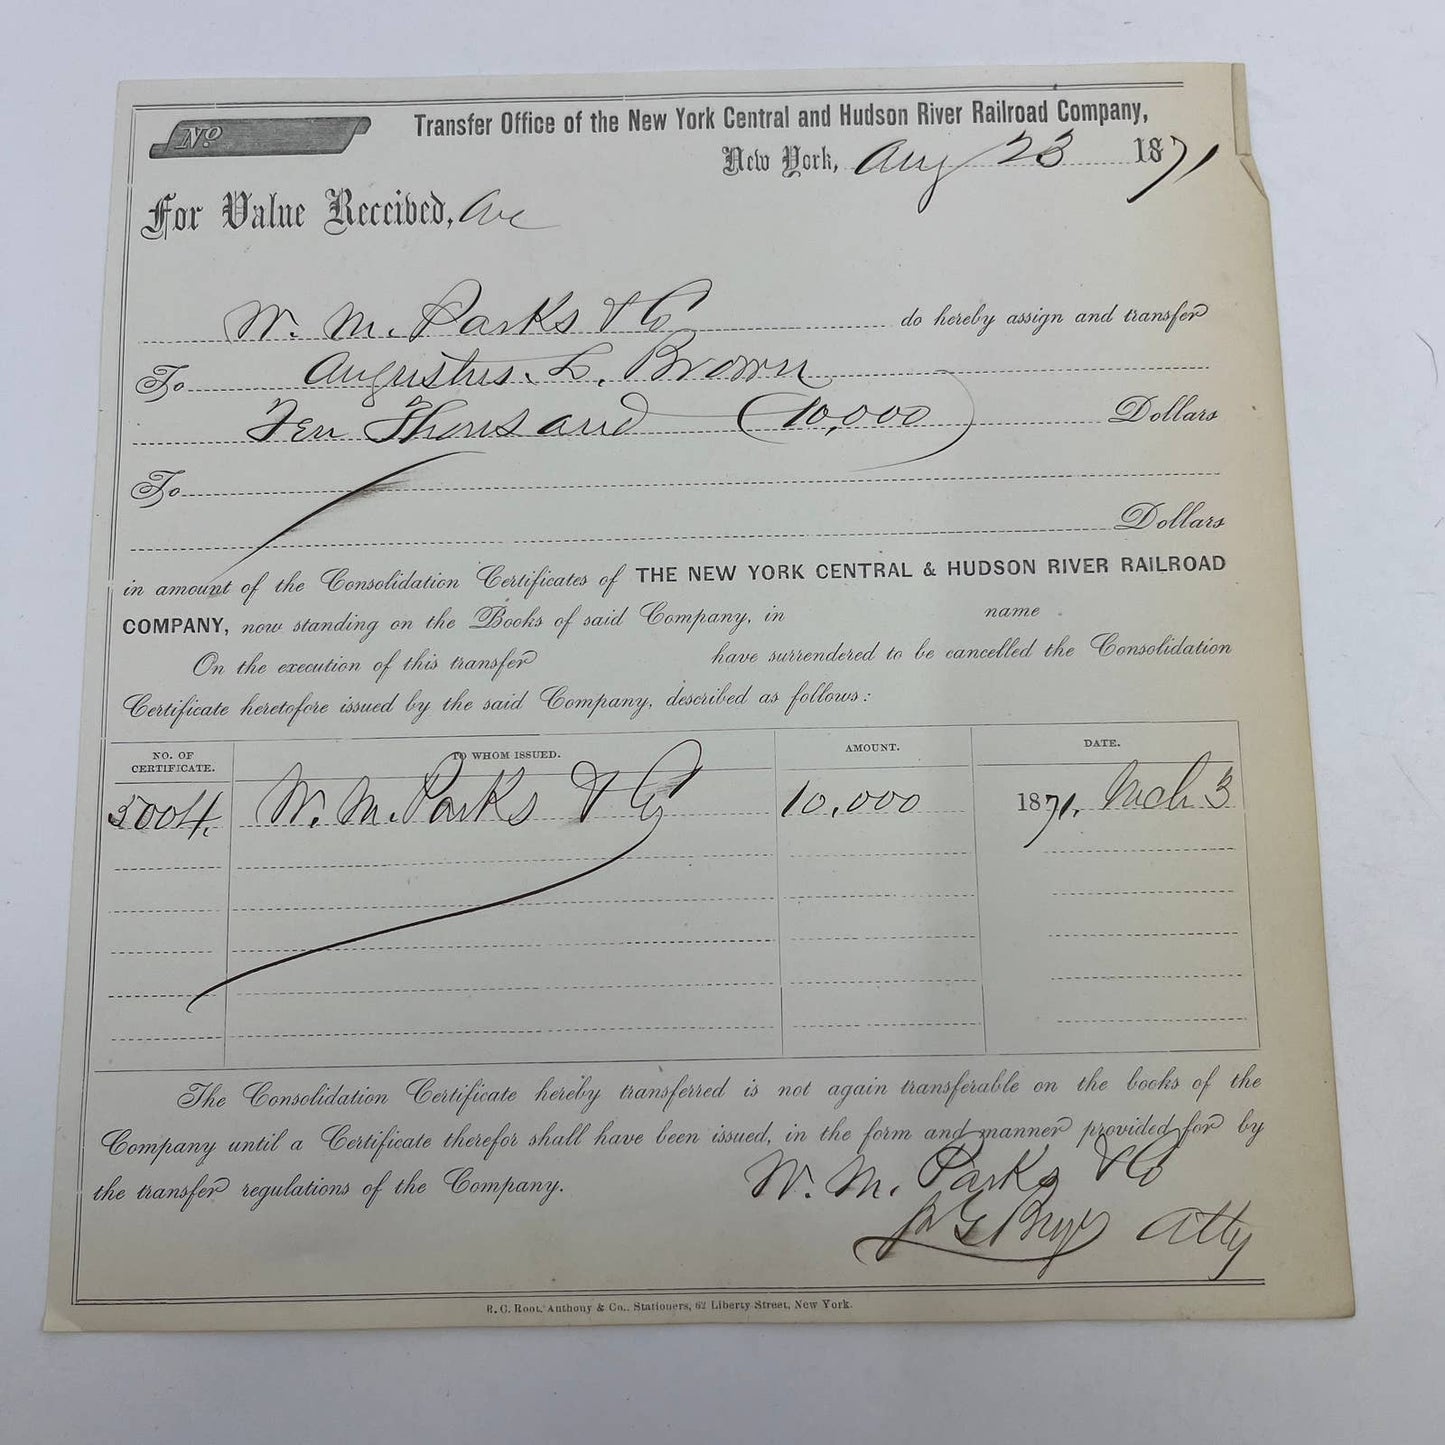 No
Transfer Office of the New York Central and Hudson River Railroad Company,
New York, Aug 23 1871
For Value Received, We
W. M. Parks & Co do hereby assign and transfer
To Augustus L. Brown
Ten Thousand (10,000) Dollars
To
Dollars
in amount of the Consolidation Certificates of THE NEW YORK CENTRAL & HUDSON RIVER RAILROAD
COMPANY, now standing on the Books of said Company, in name
On the execution of this transfer have surrendered to be cancelled the Consolidation
Certificate heretofore issued by the said Company, described as follows:
NO. OF CERTIFICATE. TO WHOM ISSUED. AMOUNT. DATE.
5004. W. M. Parks & Co 10,000 1871. Mch 3
The Consolidation Certificate hereby transferred is not again transferable on the books of the
Company until a Certificate therefor shall have been issued, in the form and manner provided for by
the transfer regulations of the Company.
W. M. Parks & Co
Atty
R. C. Root, Anthony & Co., Stationers, 62 Liberty Street, New York.